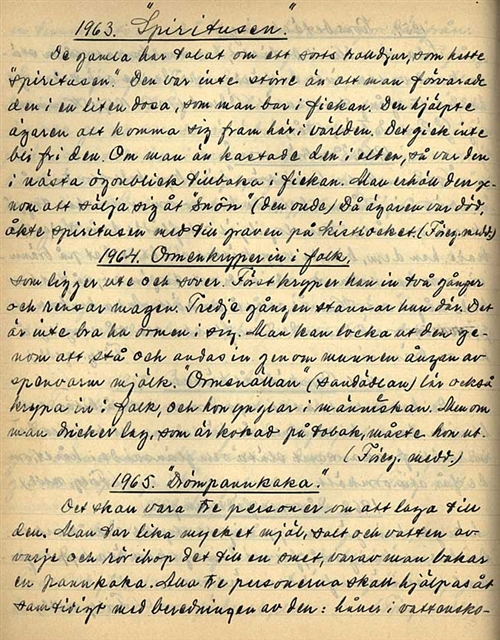 1963. "Spiritusen."
De gamla har talat om ett sorts trolldjur, som hette
"spiritusen". Den var inte större än att man förvarade
den i en liten dosa, som man bar i fickan. Den hjälpte
ägaren att komma sig fram här i världen. Det gick inte
bli fri den. Om man än kastade den i elden, så var den
i nästa ögonblick tillbaka i fickan. Man erhöll den ge-
nom att sälja sig åt "Snön" (den onde) Då ägaren var död,
åkte spiritusen med till graven på kistlocket. (Föreg. medd.)
1964. Ormen kryper in i folk,
som ligger ute och sover. Först kryper han in två gånger
och rensar magen. Tredje gången stannar han där. Det
är inte bra ha ormen i sig. Man kan locka ut den ge-
nom att stå och andas in genom munnen ångan av
spenvarm mjölk. "Ormenällan" (sandödlan) lär också
krypa in i folk, och hon ynglar i människan. Men om
man dricker lag, som är kokad på tobak, måste hon ut.
(Föreg. medd.)
1965. "Drömpannkaka."
Det skall vara tre personer om att laga till
den. Man tar lika mycket mjöl, salt och vatten av
varje och rör ihop det till en smet, varav man bakar
en pannkaka. Alla tre personerna skall hjälpas åt
samtidigt med beredningen av den: håller i vattensko-